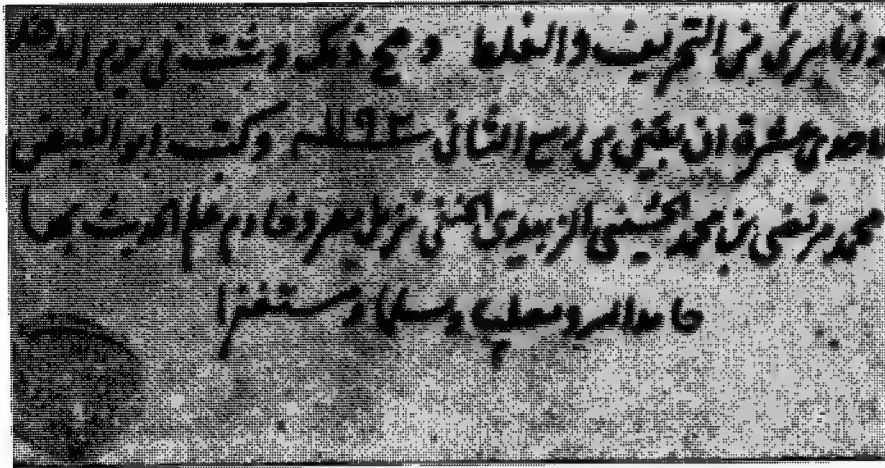 وانا برئ من التحريف والغلط وصح ذلك وثبت في يوم الاحد
لاحدى عشرة ان بقين من ربيع الثاني سنة ١١٩٣ وكتب ابو الفيض
محمد مرتضى بن محمد الحسيني الزبيدي الحنفي نزيل مصر وخادم علم الحديث بها
حامدا لله ومصليا ومسلما ومستغفرا